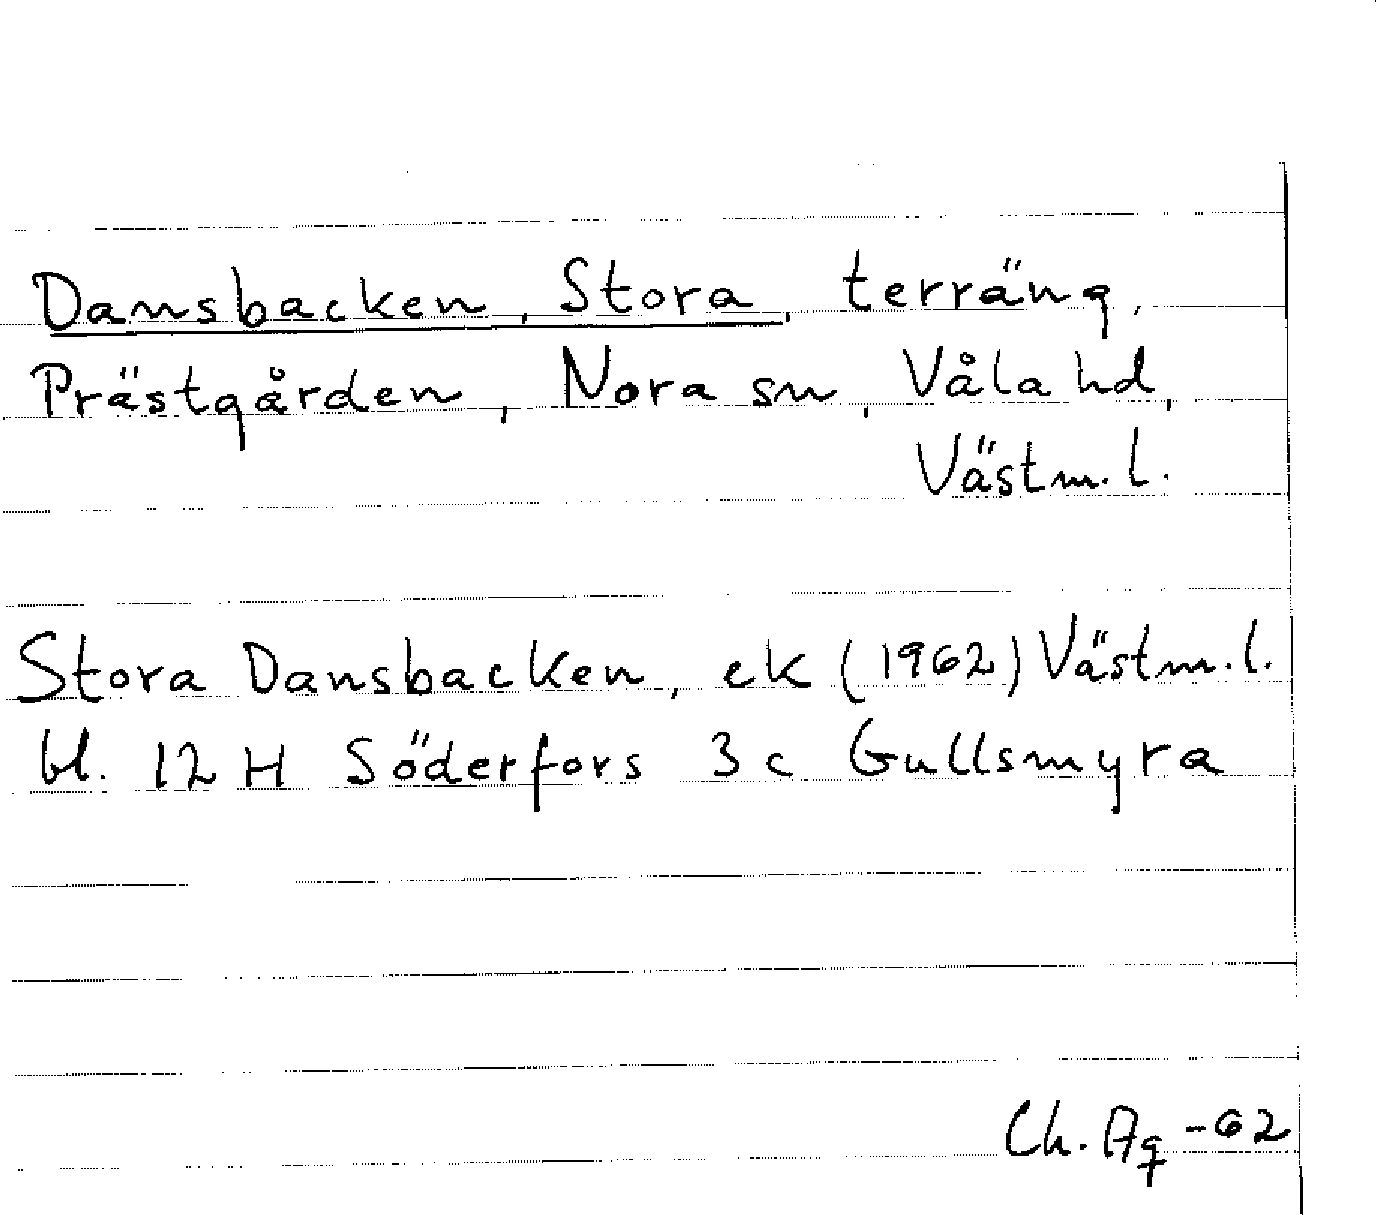 Dansbacken, Stora, terräng,
Prästgården, Nora sn, Våla hd,
Västm. l.
Stora Dansbacken, ek (1962) Västm. l.
bl. 12 H Söderfors 3 c Gullsmyra
Ch. Ag -62